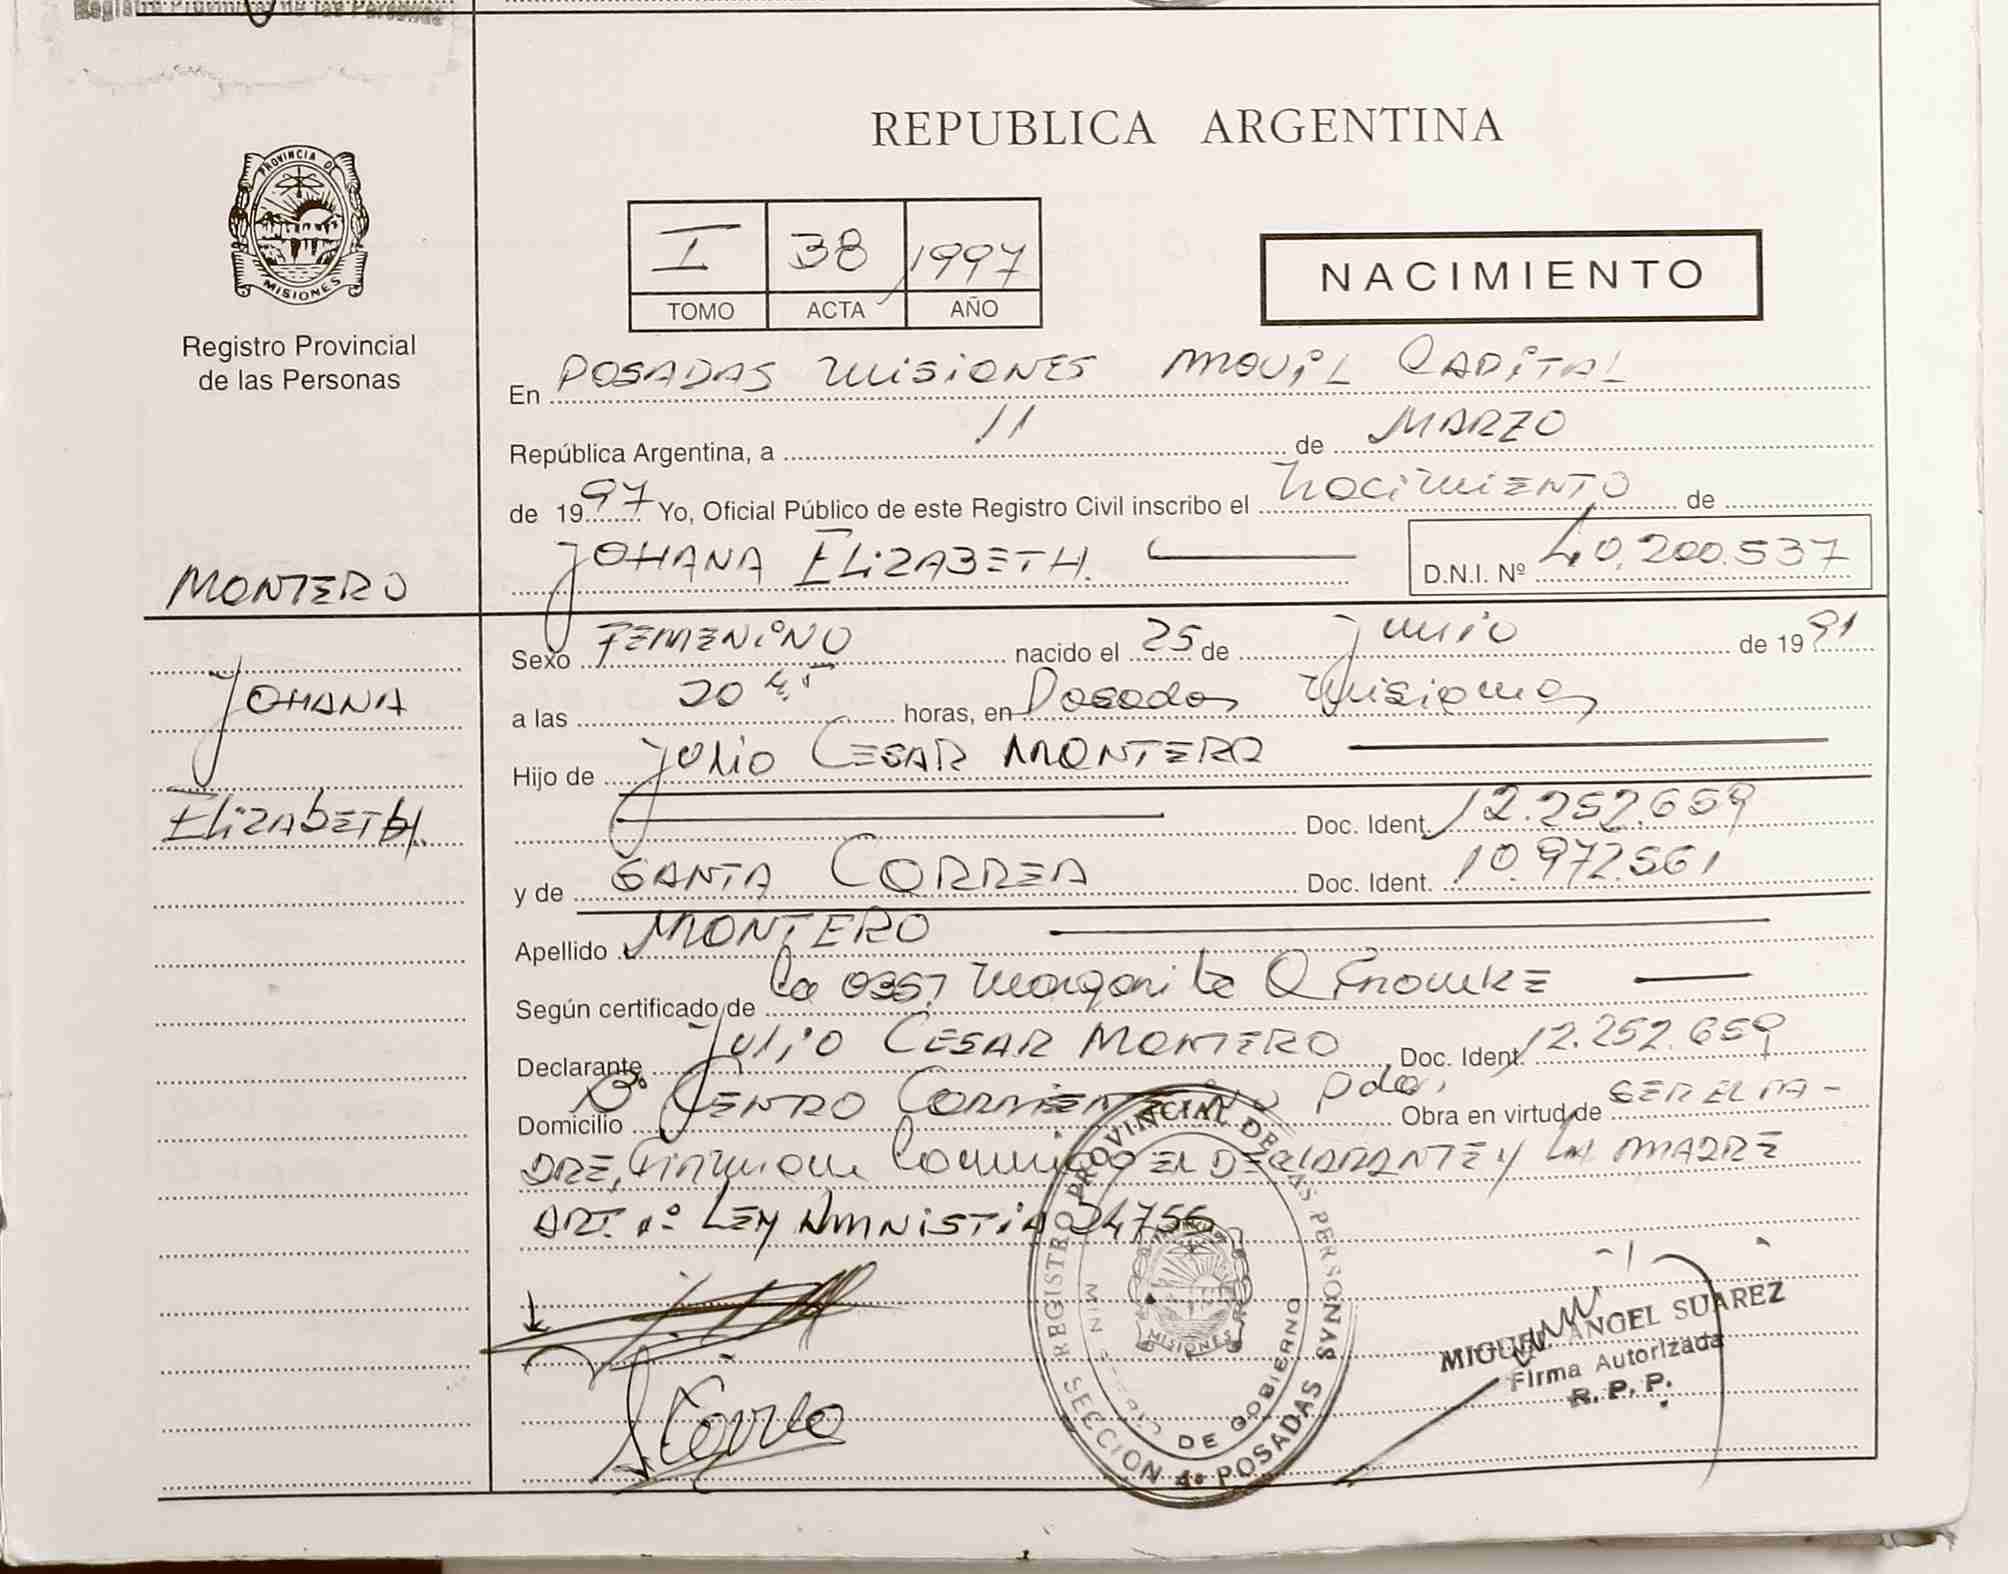 Registro Provincial de las Personas
PROVINCIA DE
MISIONES
Registro Provincial
de las Personas
REPUBLICA ARGENTINA
I 38 1997
TOMO ACTA AÑO
NACIMIENTO
En POSADAS MISIONES MOVIL CAPITAL
República Argentina, a 11 de MARZO
de 1997 Yo, Oficial Público de este Registro Civil inscribo el nacimiento de
JOHANA ELIZABETH. D.N.I. Nº 40.200.537
MONTERO
JOHANA
ELIZABETH.
Sexo FEMENINO nacido el 25 de junio de 1991
a las 20 hs horas, en Posadas Misiones
Hijo de Julio CESAR MONTERO
Doc. Ident. 12.252.659
y de SANTA CORREA Doc. Ident. 10.972.561
Apellido MONTERO
Según certificado de la Margarita
Declarante Julio CESAR MONTERO Doc. Ident. 12.252.659
Domicilio Bº Pdas. Obra en virtud de SER EL PA-
DRE, Firman Conmigo EL DECLARANTE Y LA MADRE
ART. 1º LEY AMNISTIA 24755
REGISTRO PROVINCIAL DE LAS PERSONAS
MISIONES
DE GOBIERNO
SECCION 4º POSADAS
MIGUEL ANGEL SUAREZ
Firma Autorizada
R. P. P.